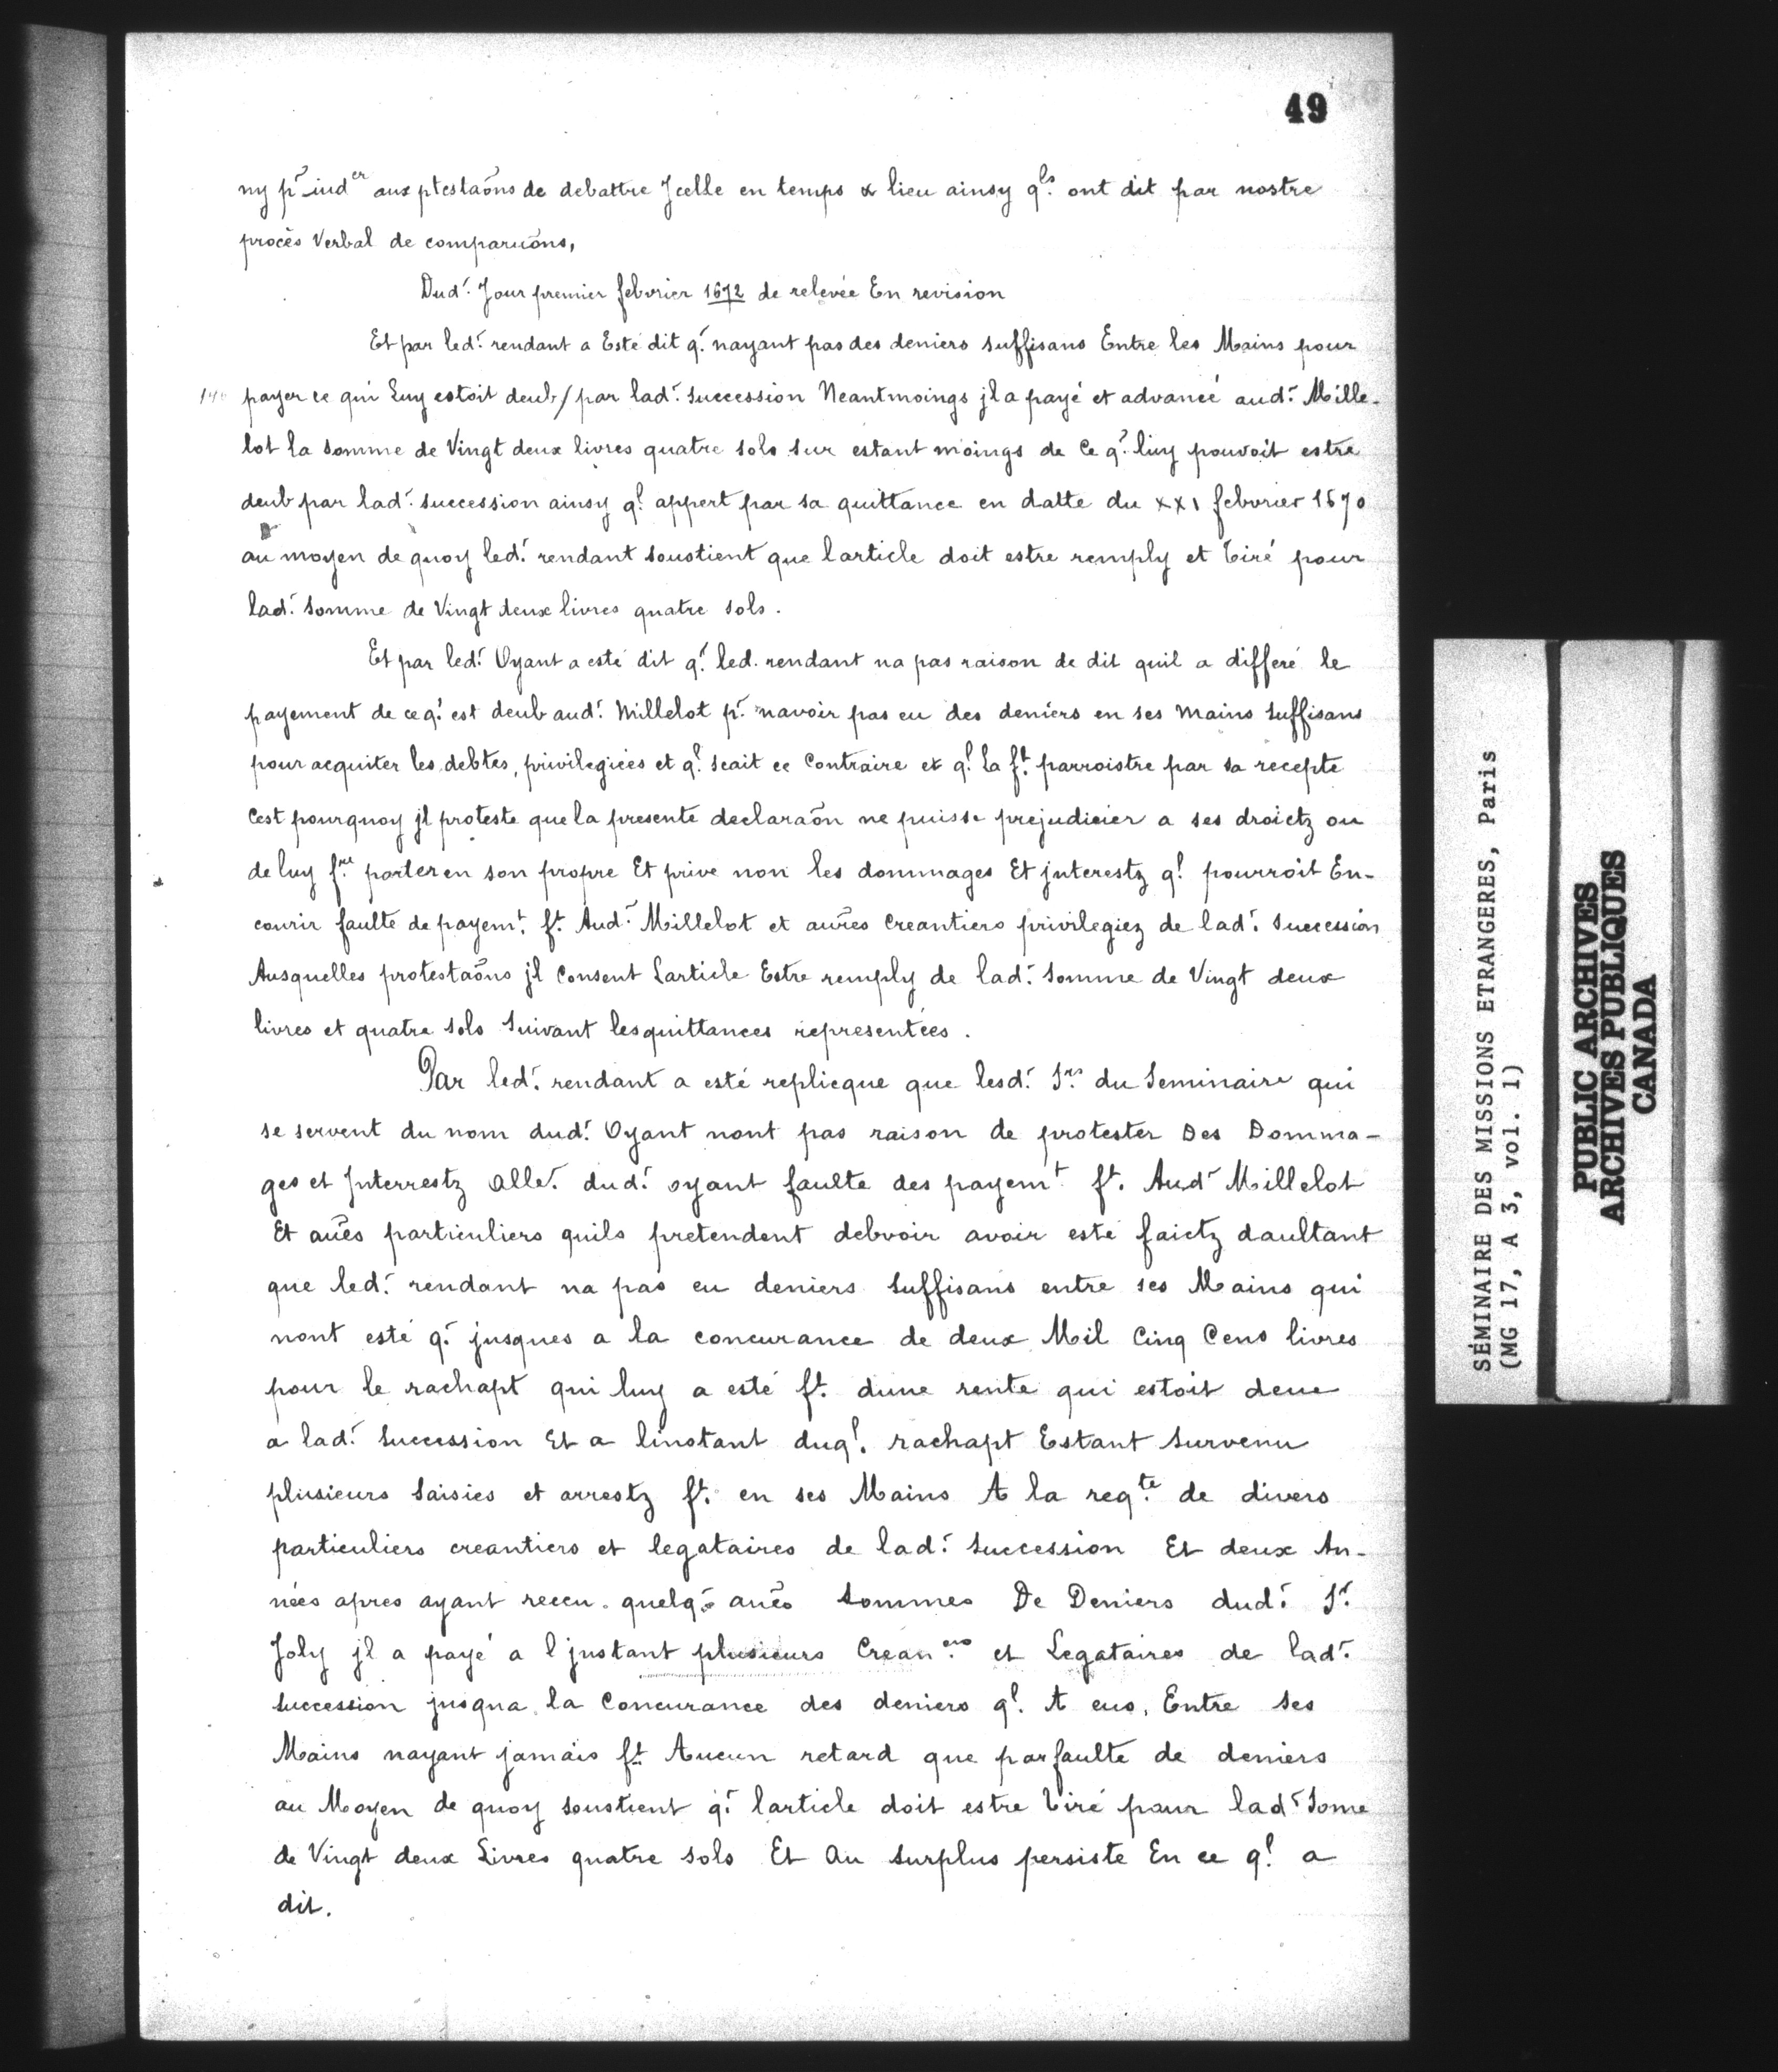 49
ny pr̃ iud.er aux ptestaõns de debattre Jcelle en temps & lieu ainsy q.ls ont dit par nostre
procès Verbal de comparuõns,
Dud.t Jour premier febvrier 1672 de relevée En revision
Et par led.t rendant a Esté dit q.' nayant pas des deniers suffisans Entre les Mains pour
payer ce qui Luy estoit deub/par lad.t succession Neantmoings jl a payé et advancé aud.t Mille-
lot la somme de Vingt deux livres quatre sols sur estant moings de Ce q.' luy pouvoit estre
deub par lad.t succession ainsy q.l appert par sa quittance en datte du xxi febvrier 1670
au moyen de quoy led.t rendant soustient que larticle doit estre remply et tiré pour
lad.t somme de Vingt deux livres quatre sols.
Et par led.t Oyant a esté dit q.' led. rendant na pas raison de dit quil a differé le
payement de ce q.' est deub aud.t Millelot p.r navoir pas eu des deniers en ses mains suffisans
pour acquiter les debtes, privilegiées et q.l scait ce Contraire et q.l la f.t parroistre par sa recepte
Cest pourquoy jl proteste que la presente declaraõn ne puisse prejudicier a ses droictz ou
de luy f.re porter en son propre Et prive non les dommages Et jnterestz q.l pourroit En-
courir faulte de payem.t f.t Aud.t Millelot et aures̃ Creantiers privilegiez de lad.t succession
Ausquelles protestaõns jl Consent Larticle Estre remply de lad.t somme de Vingt deux
livres et quatre sols suivant les quittances representées.
Par led.t rendant a esté replicque que lesd.t S.rs du Seminaire qui
se servent du nom dud.t Oyant nont pas raison de protester Des Domma-
ges et Jnterrestz alle.t dud.t oyant faulte des payem.t f.t Aud.t Millelot
Et auẽs particuliers quils pretendent debvoir avoir esté faictz daultant
que led.t rendant na pas eu deniers suffisans entre ses Mains qui
nont esté q.' jusques a la concurance de deux Mil Cinq Cens livres
pour le rachapt qui luy a esté f.t dune rente qui estoit deue
a lad.t succession Et a linstant duq.l rachapt Estant survenu
plusieurs saisies et arrestz f.t en ses Mains A la req.te de divers
particuliers creantiers et legataires de lad.t succession Et deux An-
nées apres ayant receu quelq.s auẽs sommes De Deniers dud.t S.r
Joly jl a payé a l jnstant plusieurs Crean.ers et Legataires de lad.t
succession jusqua la Concurance des deniers q.l A eus, Entre ses
Mains nayant jamais f.t Aucun retard que par faulte de deniers
au Moyen de quoy soustient q.' larticle doit estre tiré pour lad.t some
de Vingt deux Livres quatre sols Et Au surplus persiste En ce q.l a
dit.
SÉMINAIRE DES MISSIONS ETRANGERES, Paris
(MG 17, A 3, vol. 1)
PUBLIC ARCHIVES
ARCHIVES PUBLIQUES
CANADA